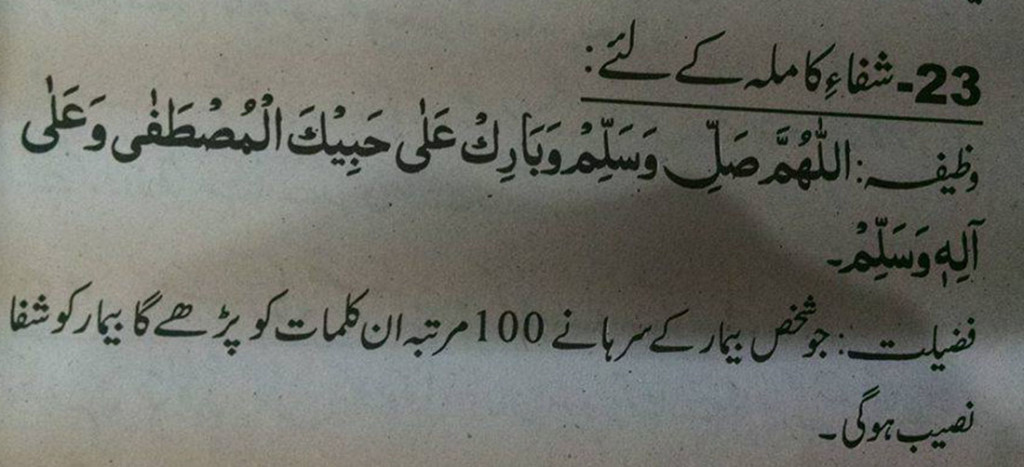 23-شفاءِ کاملہ کے لئے:
وظیفہ: اَللّٰهُمَّ صَلِّ وَسَلِّمْ وَبَارِكْ عَلٰى حَبِيْبِكَ الْمُصْطَفٰى وَعَلٰى
آلِهٖ وَسَلِّمْ۔
فضیلت: جو شخص بیمار کے سرہانے 100 مرتبہ ان کلمات کو پڑھے گا بیمار کو شفا
نصیب ہوگی۔